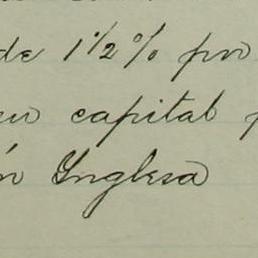 de 1½% por
capital p
Ynglesa